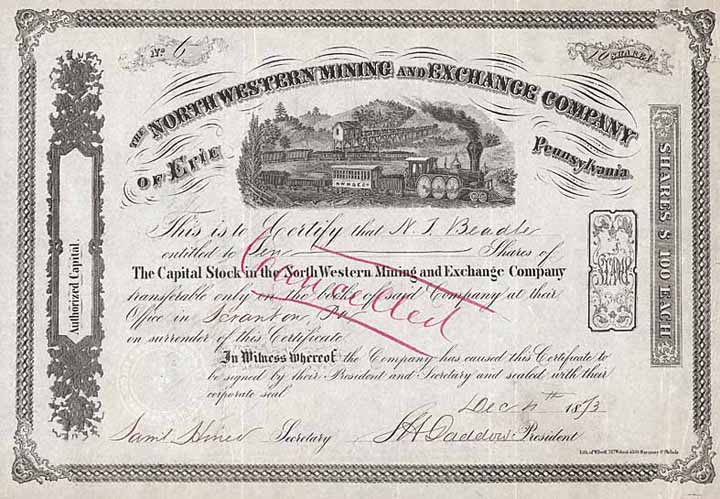 No. 6
SHARES
THE NORTH WESTERN MINING AND EXCHANGE COMPANY
OF Erie Pennsylvania
N.W.M.& E.Co
Authorized Capital.
SHARES $ 100 EACH
STAMP
This is to Certify that N. T. Beadle
entitled to Ten Shares of
The Capital Stock in the North Western Mining and Exchange Company
transferable only on the books of said Company at their
Office in Scranton, Pa
on surrender of this Certificate
Cancelled
In Witness whereof the Company has caused this Certificate to
be signed by their President and Secretary and sealed with their
corporate seal
Dec 4th 1873
Saml Hines Secretary S H Daddow President